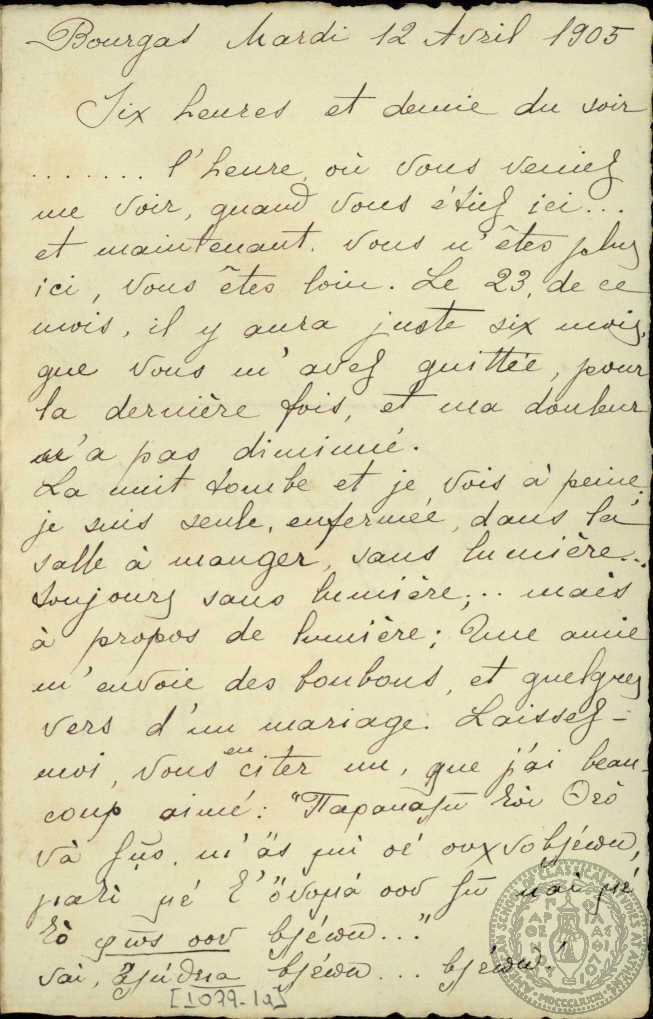 Bourgas Mardi 12 Avril 1905
Six heures et demie du soir
........ l'heure, où vous veniez
me voir, quand vous étiez ici...
et maintenant. vous n'êtes plus
ici, vous êtes loin. Le 23, de ce
mois, il y aura juste six mois,
que vous m'avez quittée, pour
la dernière fois, et ma douleur
n'a pas diminué.
La nuit tombe et je vois à peine;
je suis seule, enfermée, dans la
salle à manger, sans lumière...
toujours sans lumière;.. mais
à propos de lumière; Une amie
m'envoie des bonbons, et quelques
vers d'un mariage. Laissez-
moi, vous en citer un, que j'ai beau-
coup aimé: "Παρακαλῶ τὸν Θεὸ
νὰ ζῇς, κ' ἂς μὴ σέ συχνοβλέπω,
γιατὶ μέ τ' ὄνομά σου ζῶ καὶ μέ
τὸ φῶς σου βλέπω..."
ναί, ἀλήθεια βλέπω... βλέπω!
[1079-1a]
AMERICAN SCHOOL OF CLASSICAL STUDIES AT ATHENS
ΠΑΡΘΕΝΟΥ ΦΙΛΑΣ
MDCCCLXXXI